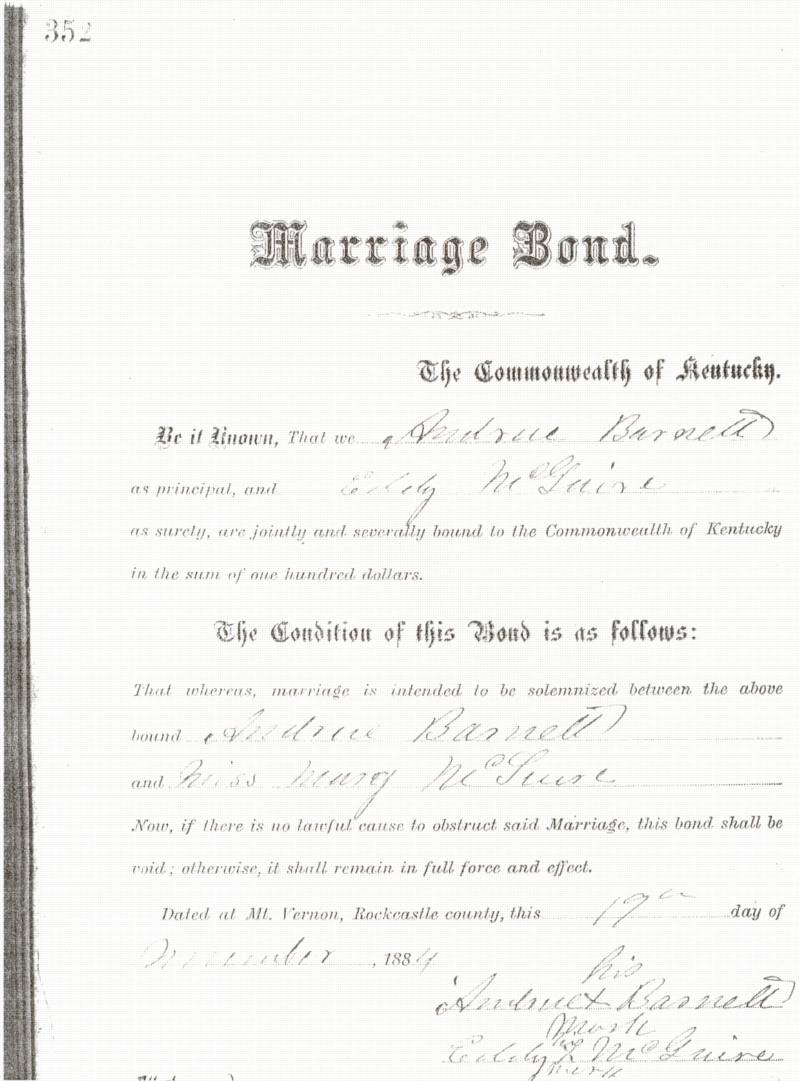 352
Marriage Bond.
The Commonwealth of Kentucky.
Be it Known, That we Andrue Barnett
as principal, and Eddy McGuire
as surely, are jointly and severally bound to the Commonwealth of Kentucky
in the sum of one hundred dollars.
The Condition of this Bond is as follows:
That whereas, marriage is intended to be solemnized between the above
bound Andrue Barnett
and Miss Mary McGuire
Now, if there is no lawful cause to obstruct said Marriage, this bond shall be
void; otherwise, it shall remain in full force and effect.
Dated at Mt. Vernon, Rockcastle county, this 19th day of
November, 1884
his
Andrue x Barnett
mark
Eddy x McGuire
mark